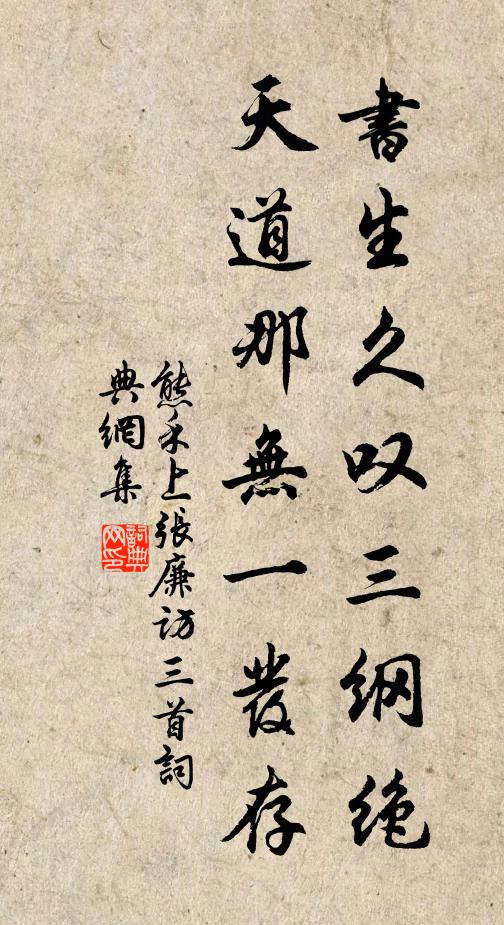 書生久叹三纲绝
天道那無一發存
熊禾上張廉訪三首詞
典網集
詞典網印